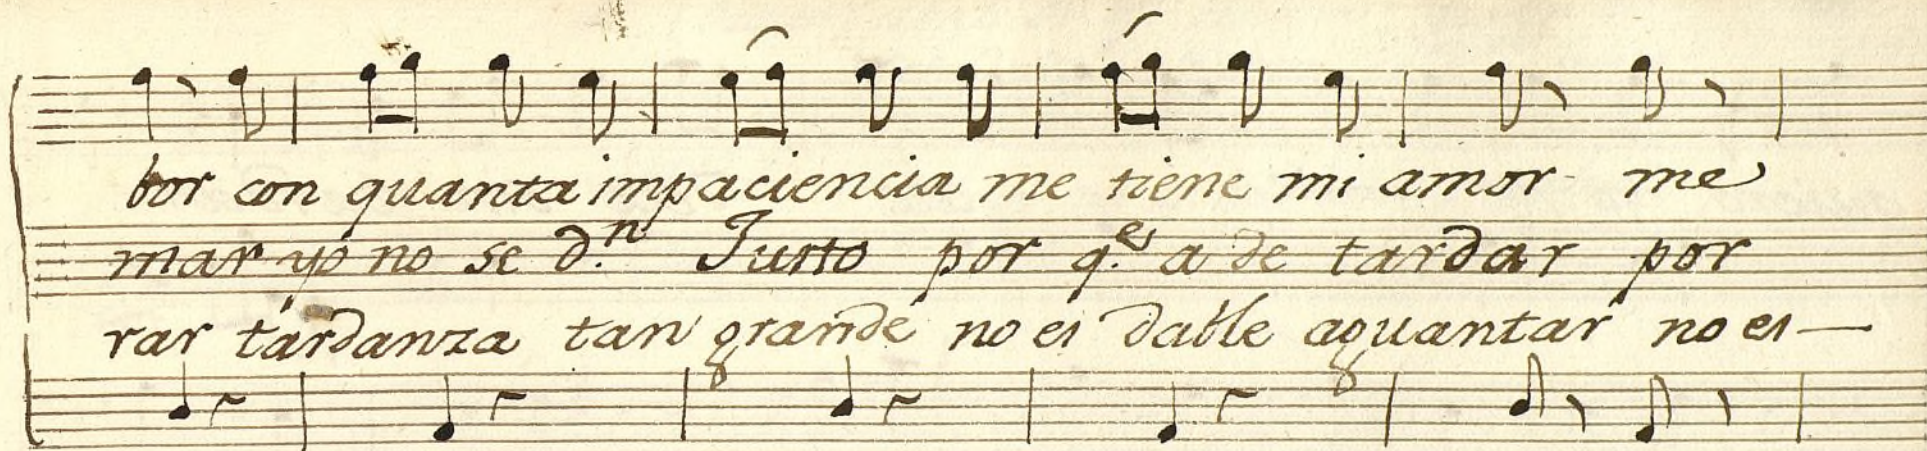 bor con quanta impaciencia me tiene mi amor me
mar yo no se d.ⁿ Justo por q.ᵉ a de tardar por
rar tardanza tan grande no es dable aguantar no es